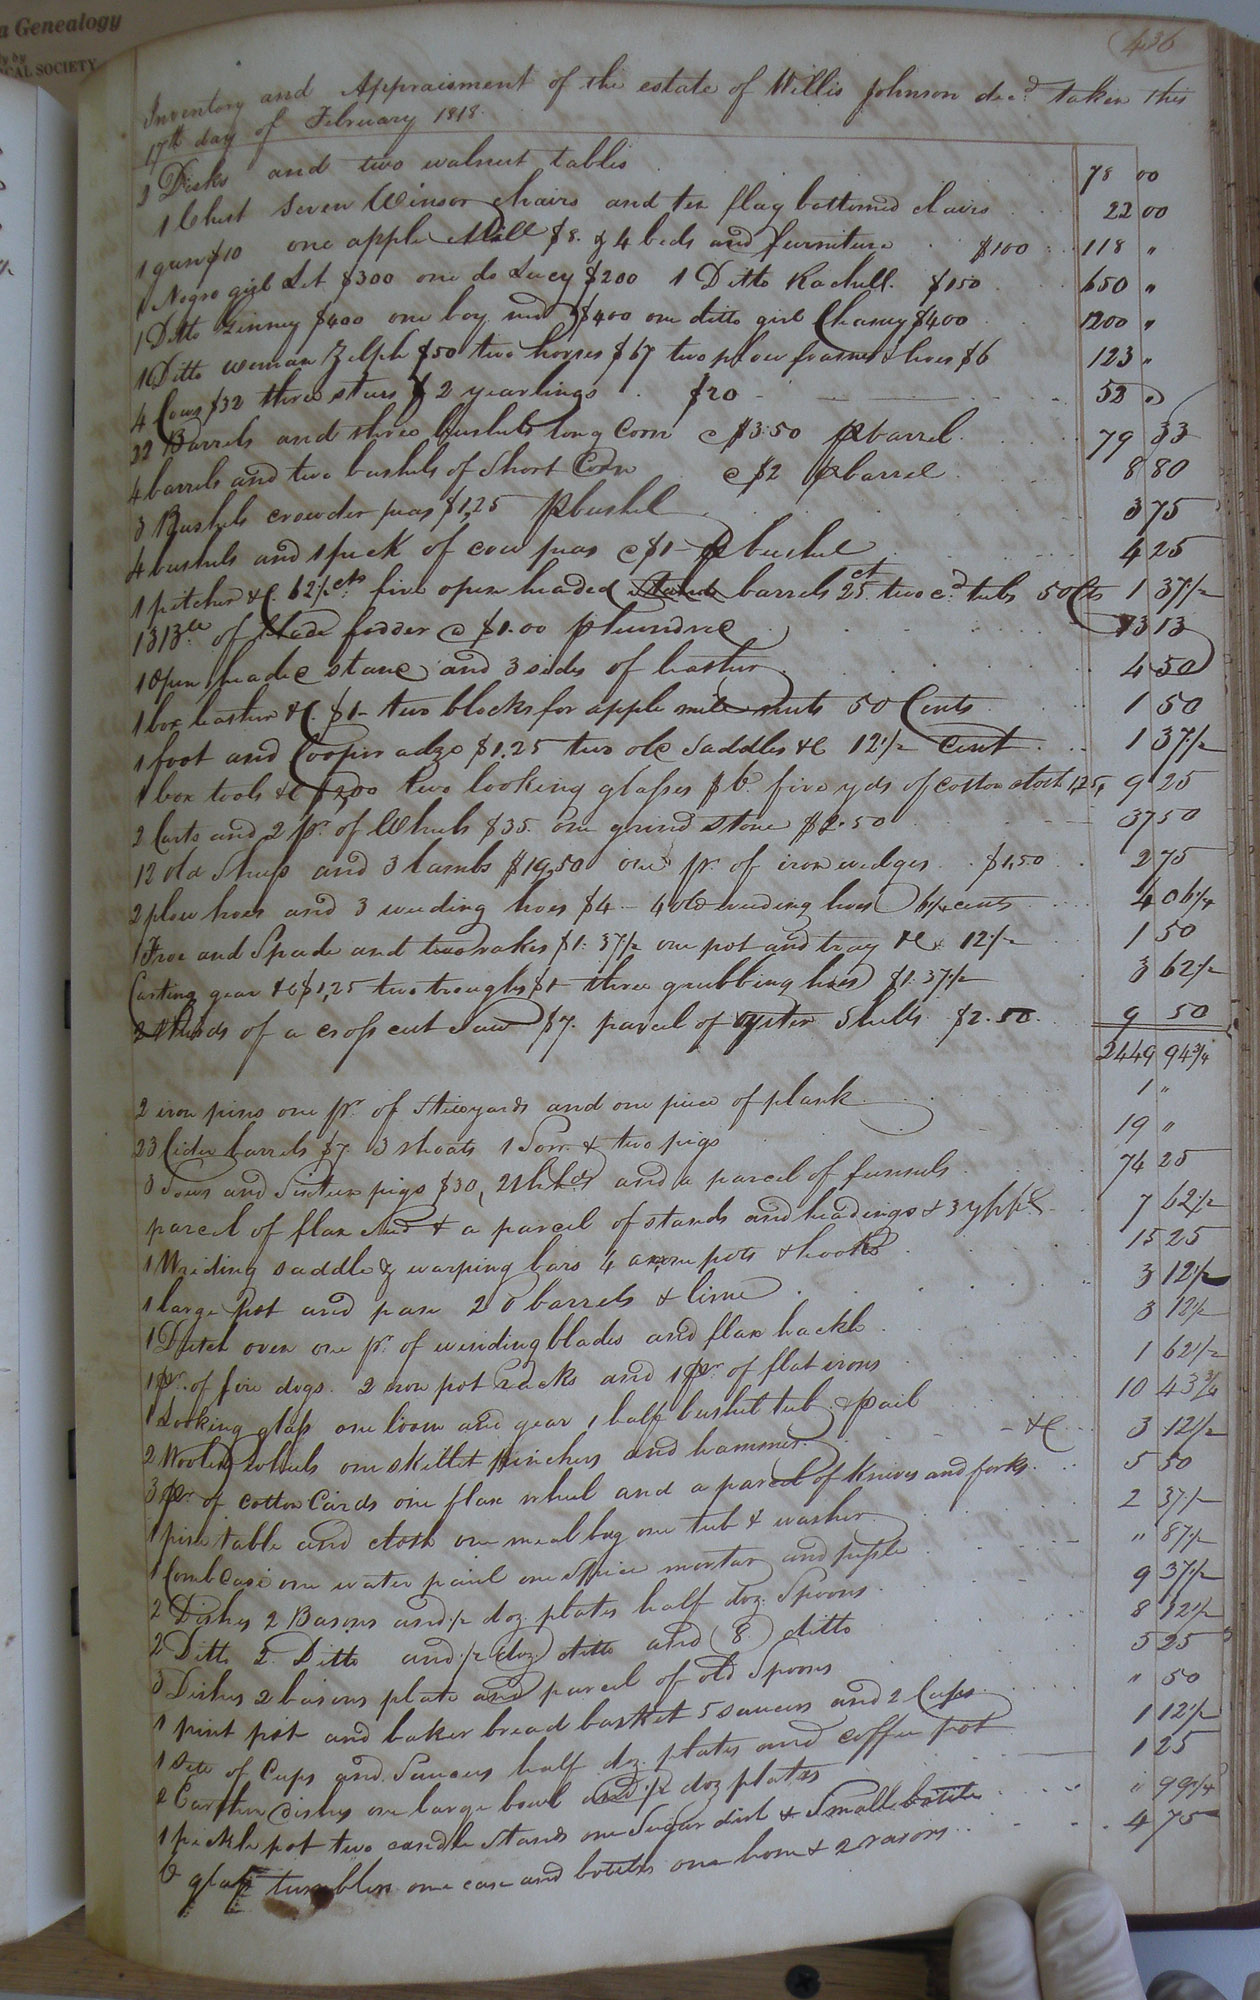 a Genealogy
ly by
CAL SOCIETY
436
Inventory and Appraisment of the estate of Willis Johnson decd taken this
17th day of February 1818.
2 Disks and two walnut tables 78 00
1 Chest seven Winsor chairs and ten flag bottomed chairs 22 00
1 gun $10 one apple Mill $8. & 4 beds and furniture $100 118 "
1 Negro girl Let $300 one do Lucy $200 1 Ditto Rachell. $150 650 "
1 Ditto Finney $400 one boy ned $400 one ditto girl Chaney $400 1200 "
1 Ditto woman Zelph $50 two horses $67 two plow frames & hoes $6 123 "
4 Cows $32 three sturs & 2 yearlings $20 52 "
22 Barrels and three bushels long Corn @ $3.50 p barrel 79 33
4 barrels and two bushels of Short Corn @ $2 p barrel 8 80
3 Bushels crowder peas $1,25 p bushel 3 75
4 bushels and 1 peck of cow peas @ $1 p bushel 4 25
1 pitcher &C. 62½ cts five open headed barrels 25 ct two cd tubs 50 Cts 1 37½
1313 lb of blade fodder @ $1.00 p hundred 13 13
1 Open headed stand and 3 sides of leather 4 50
1 box leather &C. $1- two blocks for apple mill nuts 50 Cents 1 50
1 foot and Cooper adze $1.25 two old saddles &C 12½ Cent 1 37½
1 box tools &C $2,00 two looking glasses $6. five yds of cotton stoch 1,25, 9 25
2 Carts and 2 pr. of Wheels $35. one grind stone $2.50 37 50
12 old Sheep and 3 lambs $19,50 one pr. of iron wedges $1,50 2 75
2 plow hoes and 3 weeding hoes $4 - 4 old weeding hoes 6¼ cents 4 06¼
1 Froe and Spade and two rakes $1.37½ one pot and tray &C 12½ 1 50
Carting gear &C $1,25 two troughs $1 three grubbing hoes $1.37½ 3 62½
2 thirds of a cross cut Saw $7. parcel of oyster Shells $2.50. 9 50
2449 94¾
2 iron pins one pr. of Stilyards and one piece of plank 1 "
23 Cider barrels $7 3 shoats 1 Sow & two pigs 19 "
3 Sows and Sixteen pigs $30, 21 hhds and a parcel of funnels 74 25
parcel of flax seed & a parcel of stands and headings & 3 7 62½
1 W riding saddle & warping bars 4 iron pots & hooks 15 25
1 large Pot and pan 2 barrels & lime 3 12½
1 Dutch oven one pr. of winding blades and flax hackle 3 12½
1 pr. of fire dogs. 2 iron pot racks and 1 pr. of flat irons 1 62½
1 Looking glass one loom and gear 1 half bushel tub & pail 10 43¾
2 Wooling wheels one skillet pinchers and hammer. &C 3 12½
3 pr. of cotton Cards one flax wheel and a parcel of Knives and forks 5 50
1 pine table and cloth one meal bag one tub & washer 2 37½
1 Comb Case one water pail one Spice mortar and pestle " 87½
2 Dishes 2 Basons and ½ doz. plates half doz. Spoons 9 37½
2 Ditto 2 Ditto and ½ doz ditto and 8 ditto 8 12½
3 Dishes 2 basons plate and parcel of old Spoons 5 25
1 pint pot and baker bread basket 5 saucers and 2 Cups " 50
1 sett of Cups and Saucers half doz. plates and coffee pot 1 12½
2 Earthen dishes one large bowl and ½ doz plates 1 25
1 pickle pot two candle stands one Sugar dish & Small bottle " 99¼
6 glass tumblers one case and bottles one hone & 2 razors 4 75